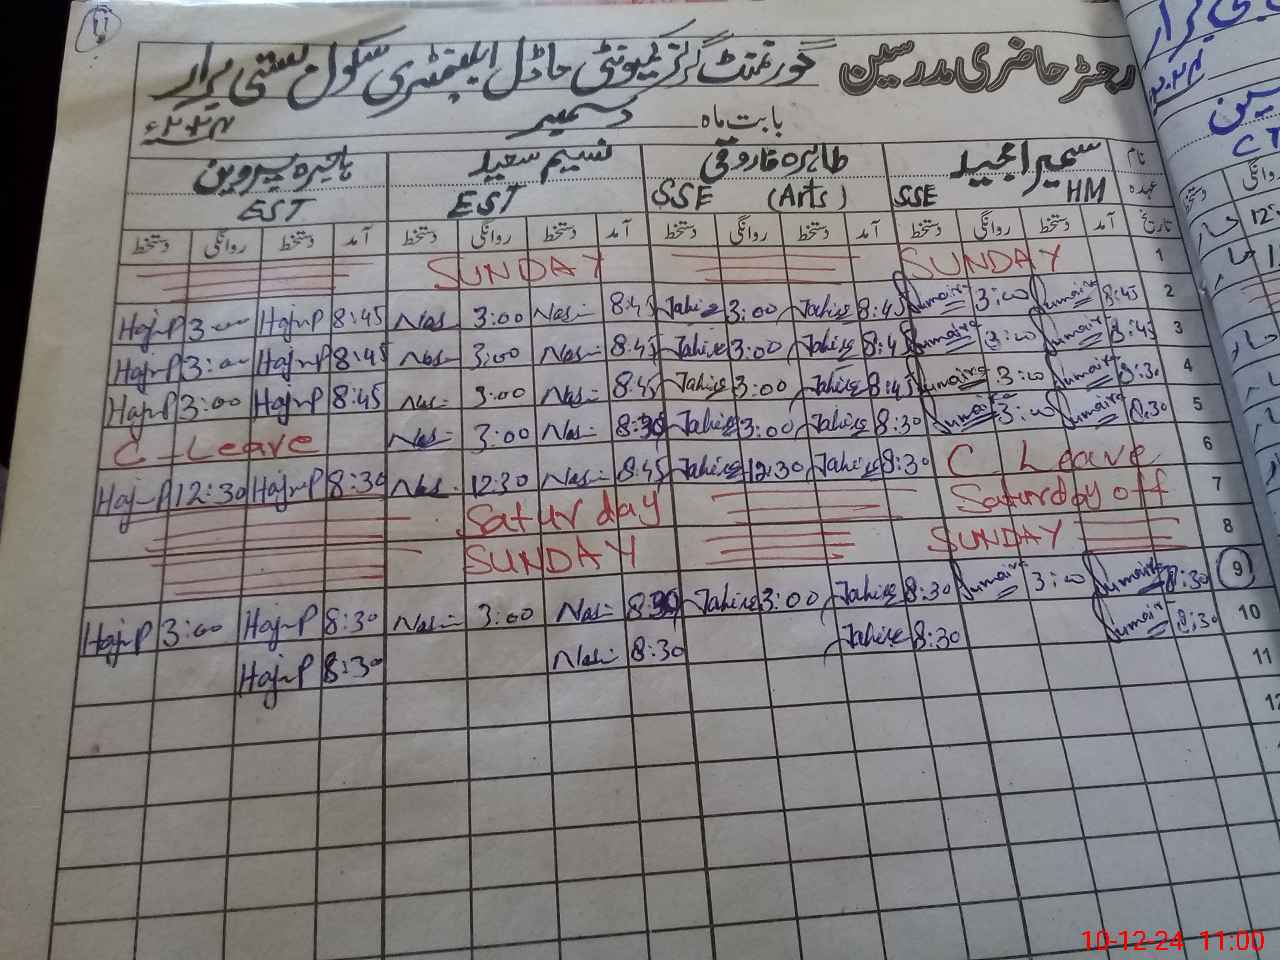 11
رجسٹر حاضری مدرسین گورنمنٹ گرلز کمیونٹی ماڈل ایلیمنٹری سکول بستی برار
بابت ماہ دسمبر ۲۰۲۴ء
نام سمیرا مجید طاہرہ فاروقی نسیم سعید ہاجرہ پروین
عہدہ HM SSE (Arts) SSE EST EST
تاریخ آمد دستخط روانگی دستخط آمد دستخط روانگی دستخط آمد دستخط روانگی دستخط آمد دستخط روانگی دستخط
SUNDAY SUNDAY 1
HajrP 3:00 HajrP 8:45 Nas 3:00 Nas 8:45 Tahira 3:00 Tahira 8:45 Sumaira 3:00 Sumaira 8:45 2
HajrP 3:00 HajrP 8:45 Nas 3:00 Nas 8:45 Tahira 3:00 Tahira 8:45 Sumaira 3:00 Sumaira 8:45 3
HajrP 3:00 HajrP 8:45 Nas 3:00 Nas 8:45 Tahira 3:00 Tahira 8:45 Sumaira 3:00 Sumaira 8:30 4
C_Leave Nas 3:00 Nas 8:30 Tahira 3:00 Tahira 8:30 Sumaira 3:00 Sumaira 8:30 5
HajrP 12:30 HajrP 8:30 Nas 12:30 Nas 8:45 Tahira 12:30 Tahira 8:30 C Leave 6
Saturday Saturday off 7
SUNDAY SUNDAY 8
HajrP 3:00 HajrP 8:30 Nas 3:00 Nas 8:30 Tahira 3:00 Tahira 8:30 Sumaira 3:00 Sumaira 8:30 9
HajrP 8:30 Nas 8:30 Tahira 8:30 Sumaira 8:30 10
11
12
10-12-24 11:00